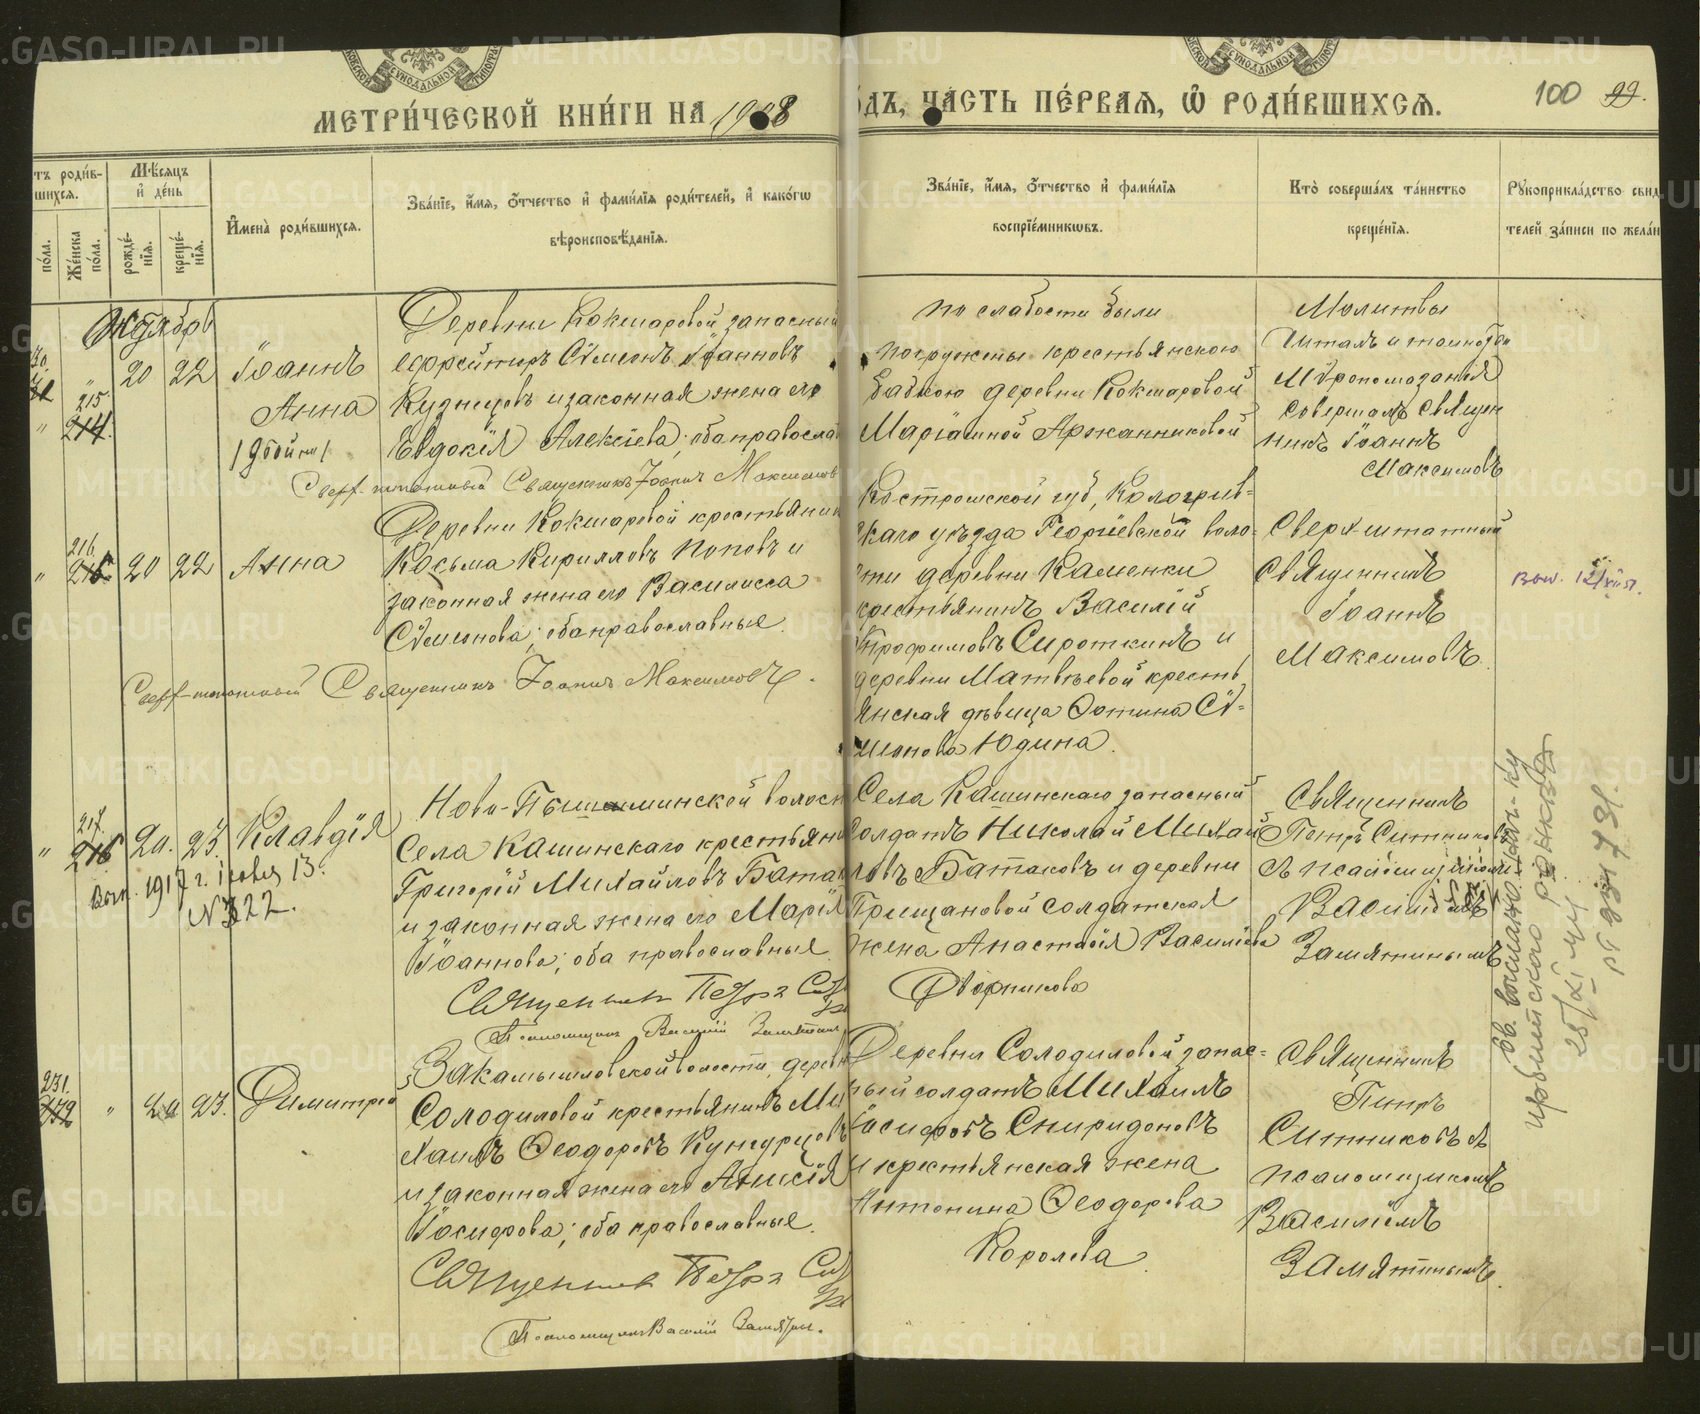 МЕТРИ́ЧЕСКОЙ КНИ́ГИ НА 1908
ѻ́ДЪ, ЧА́СТЬ ПЕ́РВАѦ, Ѽ РОДИ́ВШИХСѦ.
100 99.
тъ роди́в-
шихсѧ.
по́ла.
Же́нска
по́ла.
Мѣ́сѧцъ
и҆ де́нь
рожде́-
нїѧ.
креще́-
нїѧ.
И҆мена̀ роди́вшихсѧ.
Зва́нїе, и҆́мѧ, ѻ҆́тчество и҆ фами́лїѧ роди́телей, и҆ како́гѡ
вѣроисповѣ́данїѧ.
Зва́нїе, и҆́мѧ, ѻ҆́тчество и҆ фами́лїѧ
воспрїе́мникѡвъ.
Кто̀ соверша́лъ та́инство
креще́нїѧ.
Рꙋкоприкла́дство свид
телей за́писи по жела́н
Ноябрь
215
214.
20 22
Іоаннъ
Анна
/двойни/
Деревни Кокшаровой запасный
ефрейторъ Сѵмеонъ Іоанновъ
Кузнецовъ и законная жена его
Евдокія Алексіева; оба православ
Сверхштатный Священникъ Іоаннъ Максимовъ
по слабости были
погружены крестьянскою
бабкою деревни Кокшаровой
Маріамной Аржанниковой
Молитвы
читалъ и таинство
Мѵропомазанія
совершалъ Священ
никъ Іоаннъ
Максимовъ
216.
215.
20 22 Анна
Деревни Кокшаровой крестьянинъ
Косьма Кирилловъ Поповъ и
законная жена его Василисса
Сѵмеонова; оба православные.
Сверхштатный Священникъ Іоаннъ Максимовъ.
Костромской губ., Кологрив-
скаго уѣзда Георгіевской воло-
сти деревни Каменки
крестьянинъ Василій
Трофимовъ Сироткинъ и
деревни Матвѣевой кресть
янская дѣвица Фотина Сѵ-
меонова Юдина.
Сверхштатный
Священникъ
Іоаннъ
Максимовъ.
217.
216
20. 23. Клавдія
1917 г. 13.
N 322.
Ново-Пышминской волости
Села Кашинскаго крестьянинъ
Григорій Михайловъ Батак
и законная жена его Марія
Іоаннова; оба православные
Священникъ Петръ Сит
Псаломщикъ Василій Замятинъ
Села Кашинскаго запасный
солдатъ Николай Михай
ловъ Батаковъ и деревни
Грищановой солдатская
жена Анастасія Василіева
Дворникова
Священникъ
Петръ Ситниковъ
съ псаломщикомъ
Василіемъ
Замятинымъ
231.
232
" 20 23. Димитрій
Закамышловской волости, деревни
Солодиловой крестьянинъ Ми
хаилъ Ѳеодоровъ Кунгурцовъ
и законная жена его Анисія
Іосифова; оба православные.
Священникъ Петръ Сит
Псаломщикъ Василій Замятин.
Деревни Солодиловой запас-
ный солдатъ Михаилъ
Іосифовъ Спиридоновъ
и крестьянская жена
Антонина Ѳеодорова
Королева
Священникъ
Петръ
Ситниковъ съ
псаломщикомъ
Василіемъ
Замятинымъ.
METRIKI.GASO-URAL.RU